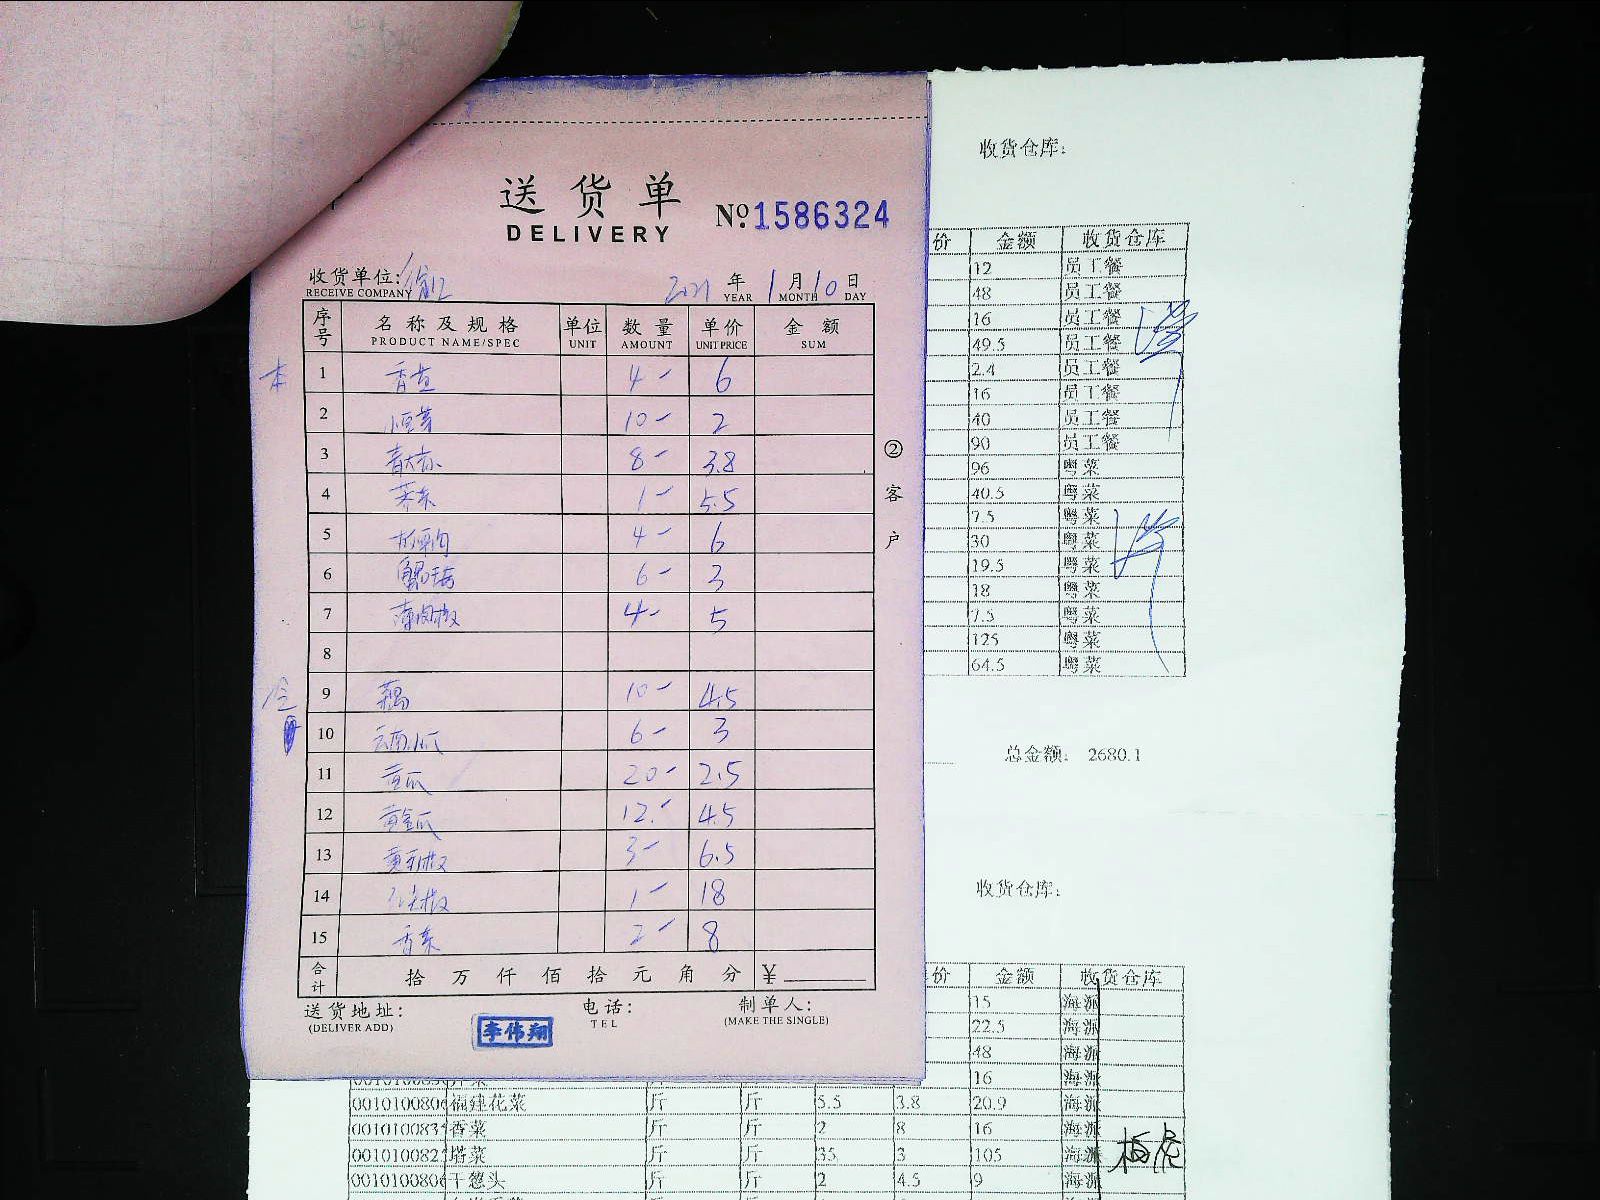 送货单
DELIVERY
№ 1586324
收货单位:
RECEIVE COMPANY
2021 年 1 月 10 日
YEAR MONTH DAY
序号 名称及规格 单位 数量 单价 金额
PRODUCT NAME/SPEC UNIT AMOUNT UNIT PRICE SUM
本
1 香芹 4- 6
2 小豆芽 10- 2
3 8- 3.8
4 1- 5.5
5 4- 6
6 6- 3
7 薄肉椒 4- 5
8
冷
9 藕 10- 4.5
10 云南小瓜 6- 3
11 黄瓜 20- 2.5
12 黄金瓜 12- 4.5
13 黄彩椒 3- 6.5
14 1- 18
15 香菜 2- 8
合计 拾 万 仟 佰 拾 元 角 分 ¥
②客户
送货地址:
(DELIVER ADD)
电话:
TEL
制单人:
(MAKE THE SINGLE)
李伟翔
收货仓库:
价 金额 收货仓库
12 员工餐
48 员工餐
16 员工餐
49.5 员工餐
2.4 员工餐
16 员工餐
40 员工餐
90 员工餐
96 粤菜
40.5 粤菜
7.5 粤菜
30 粤菜
19.5 粤菜
18 粤菜
7.5 粤菜
125 粤菜
64.5 粤菜
总金额: 2680.1
收货仓库:
价 金额 收货仓库
15 海派
22.5 海派
48 海派
16 海派
0010100806 福建花菜 斤 斤 5.5 3.8 20.9 海派
001010083 香菜 斤 斤 2 8 16 海派
001010082 塔菜 斤 斤 35 3 105 海派
0010100806 干葱头 斤 斤 2 4.5 9 海派